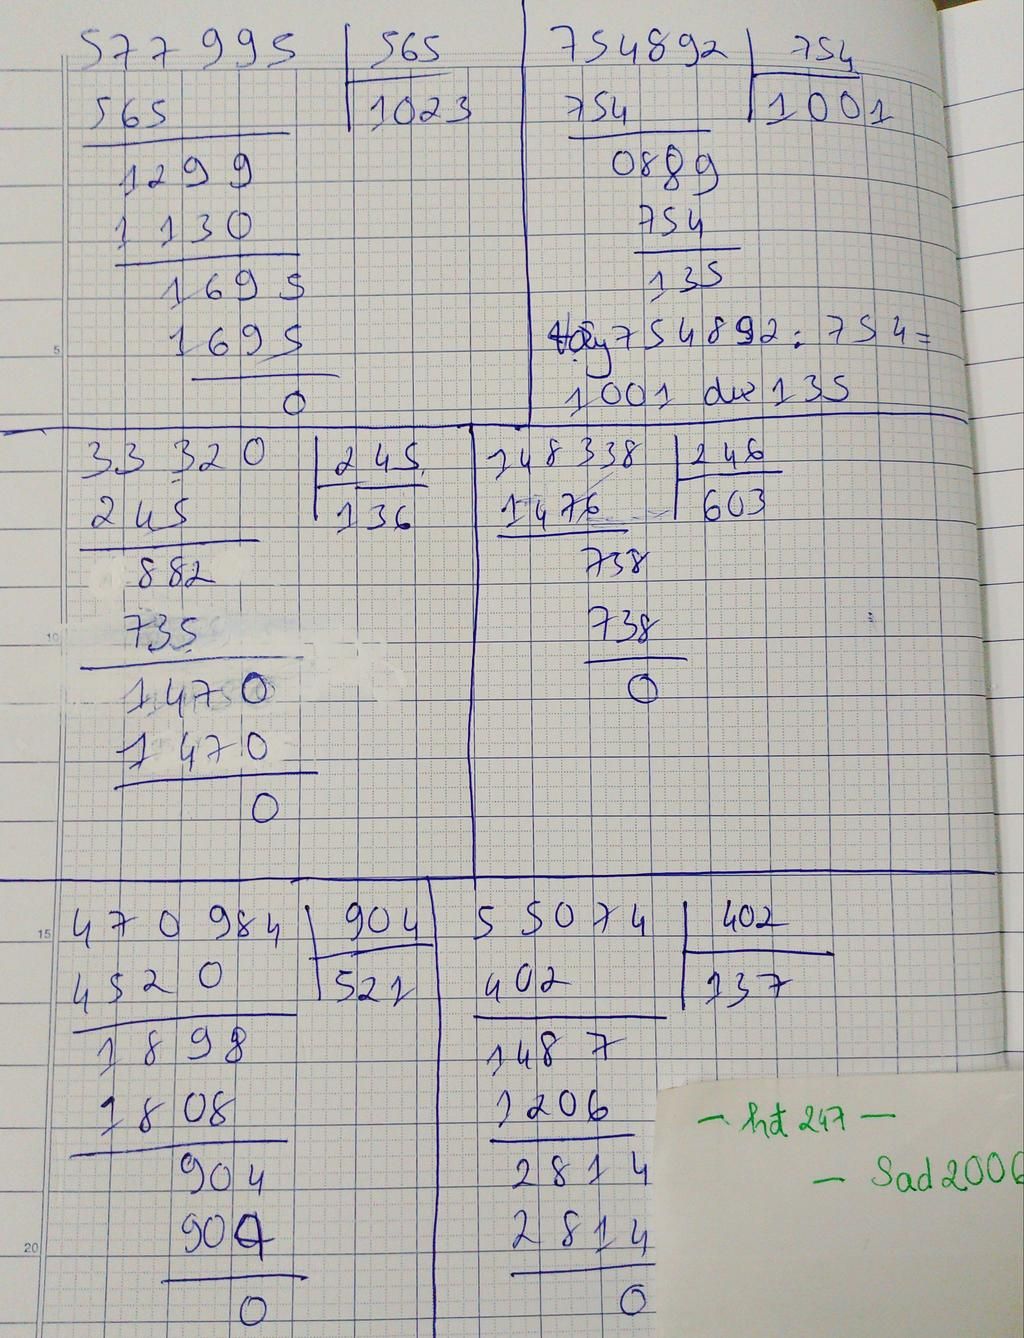 577995 565
565 1023
1299
1130
1695
1695
0
754892 754
754 1001
0889
754
135
Vậy 754892 : 754 =
1001 dư 135
33320 245
245 136
882
735
1470
1470
0
148338 246
1476 603
738
738
0
470984 904
4520 521
1898
1808
904
904
0
55074 402
402 137
1487
1206
2814
2814
0
- hđ 247 -
- Sad2006
5
10
15
20